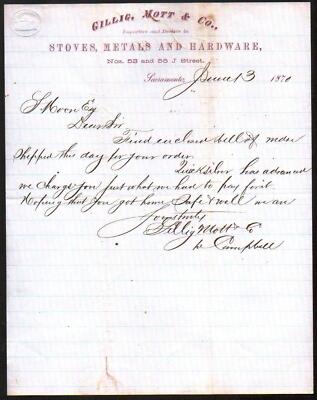 GILLIG, MOTT & CO.,
Importers and Dealers in
STOVES, METALS AND HARDWARE,
Nos. 53 and 55 J Street.
Sacramento, June 13 1870
S Moon Esq
Dear Sir
Find enclosed bill of
shipped this day for your order
Quicksilver has advanced
we charge you just what we have to pay for it
Hoping that you got home safe & well we are
Yours truly
Gillig Mott & C
Campbell